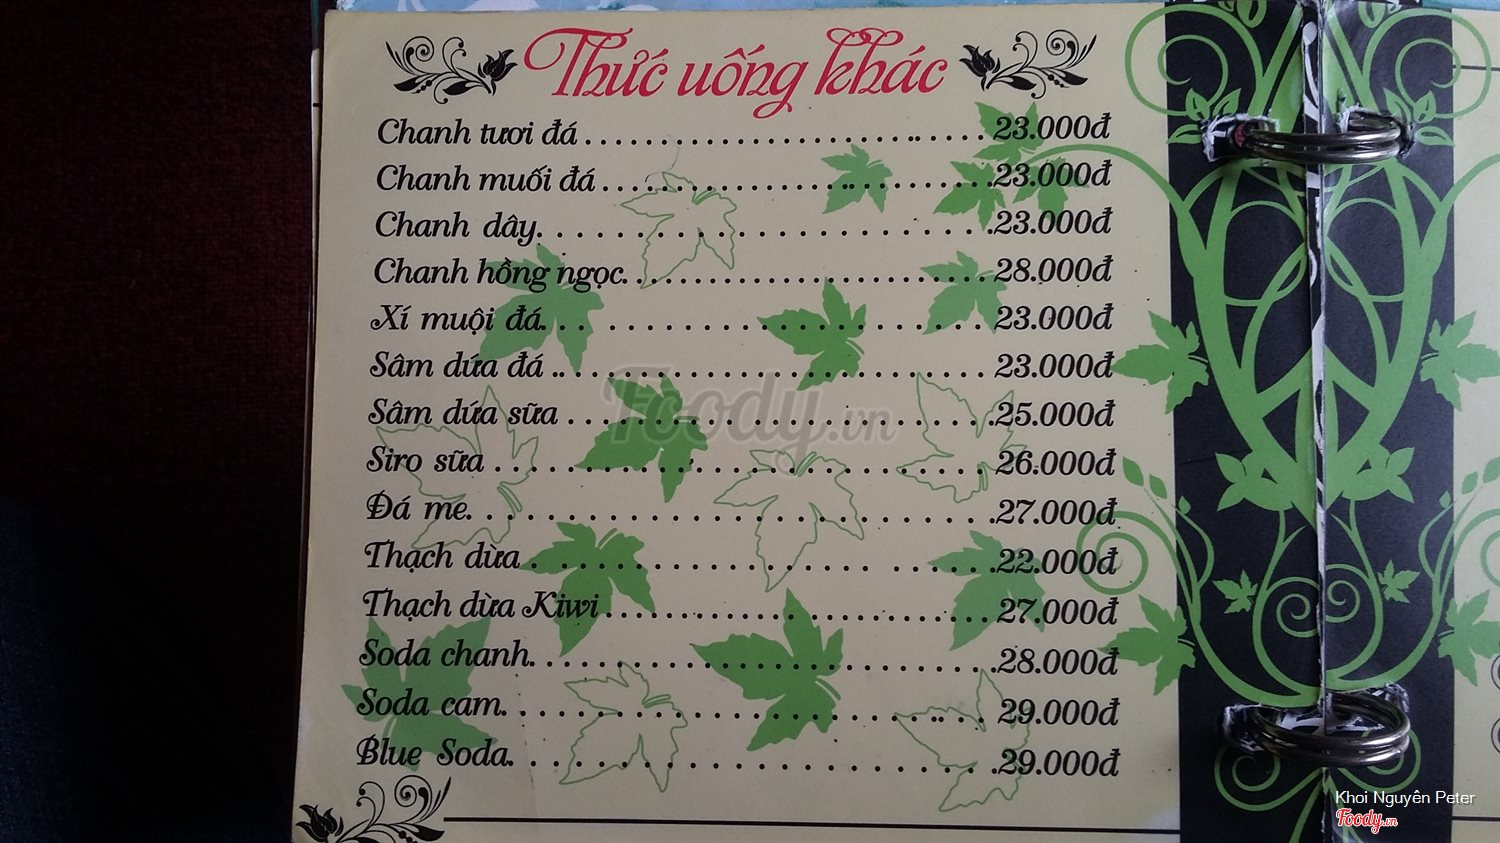 Thức uống khác
Chanh tươi đá ........................ 23.000đ
Chanh muối đá ........................ 23.000đ
Chanh dây ........................ 23.000đ
Chanh hồng ngọc ........................ 28.000đ
Xí muội đá ........................ 23.000đ
Sâm dứa đá ........................ 23.000đ
Sâm dứa sữa ........................ 25.000đ
Siro sữa ........................ 26.000đ
Đá me ........................ 27.000đ
Thạch dừa ........................ 22.000đ
Thạch dừa Kiwi ........................ 27.000đ
Soda chanh ........................ 28.000đ
Soda cam ........................ 29.000đ
Blue Soda ........................ 29.000đ
Foody.vn
Khoi Nguyên Peter
Foody.vn